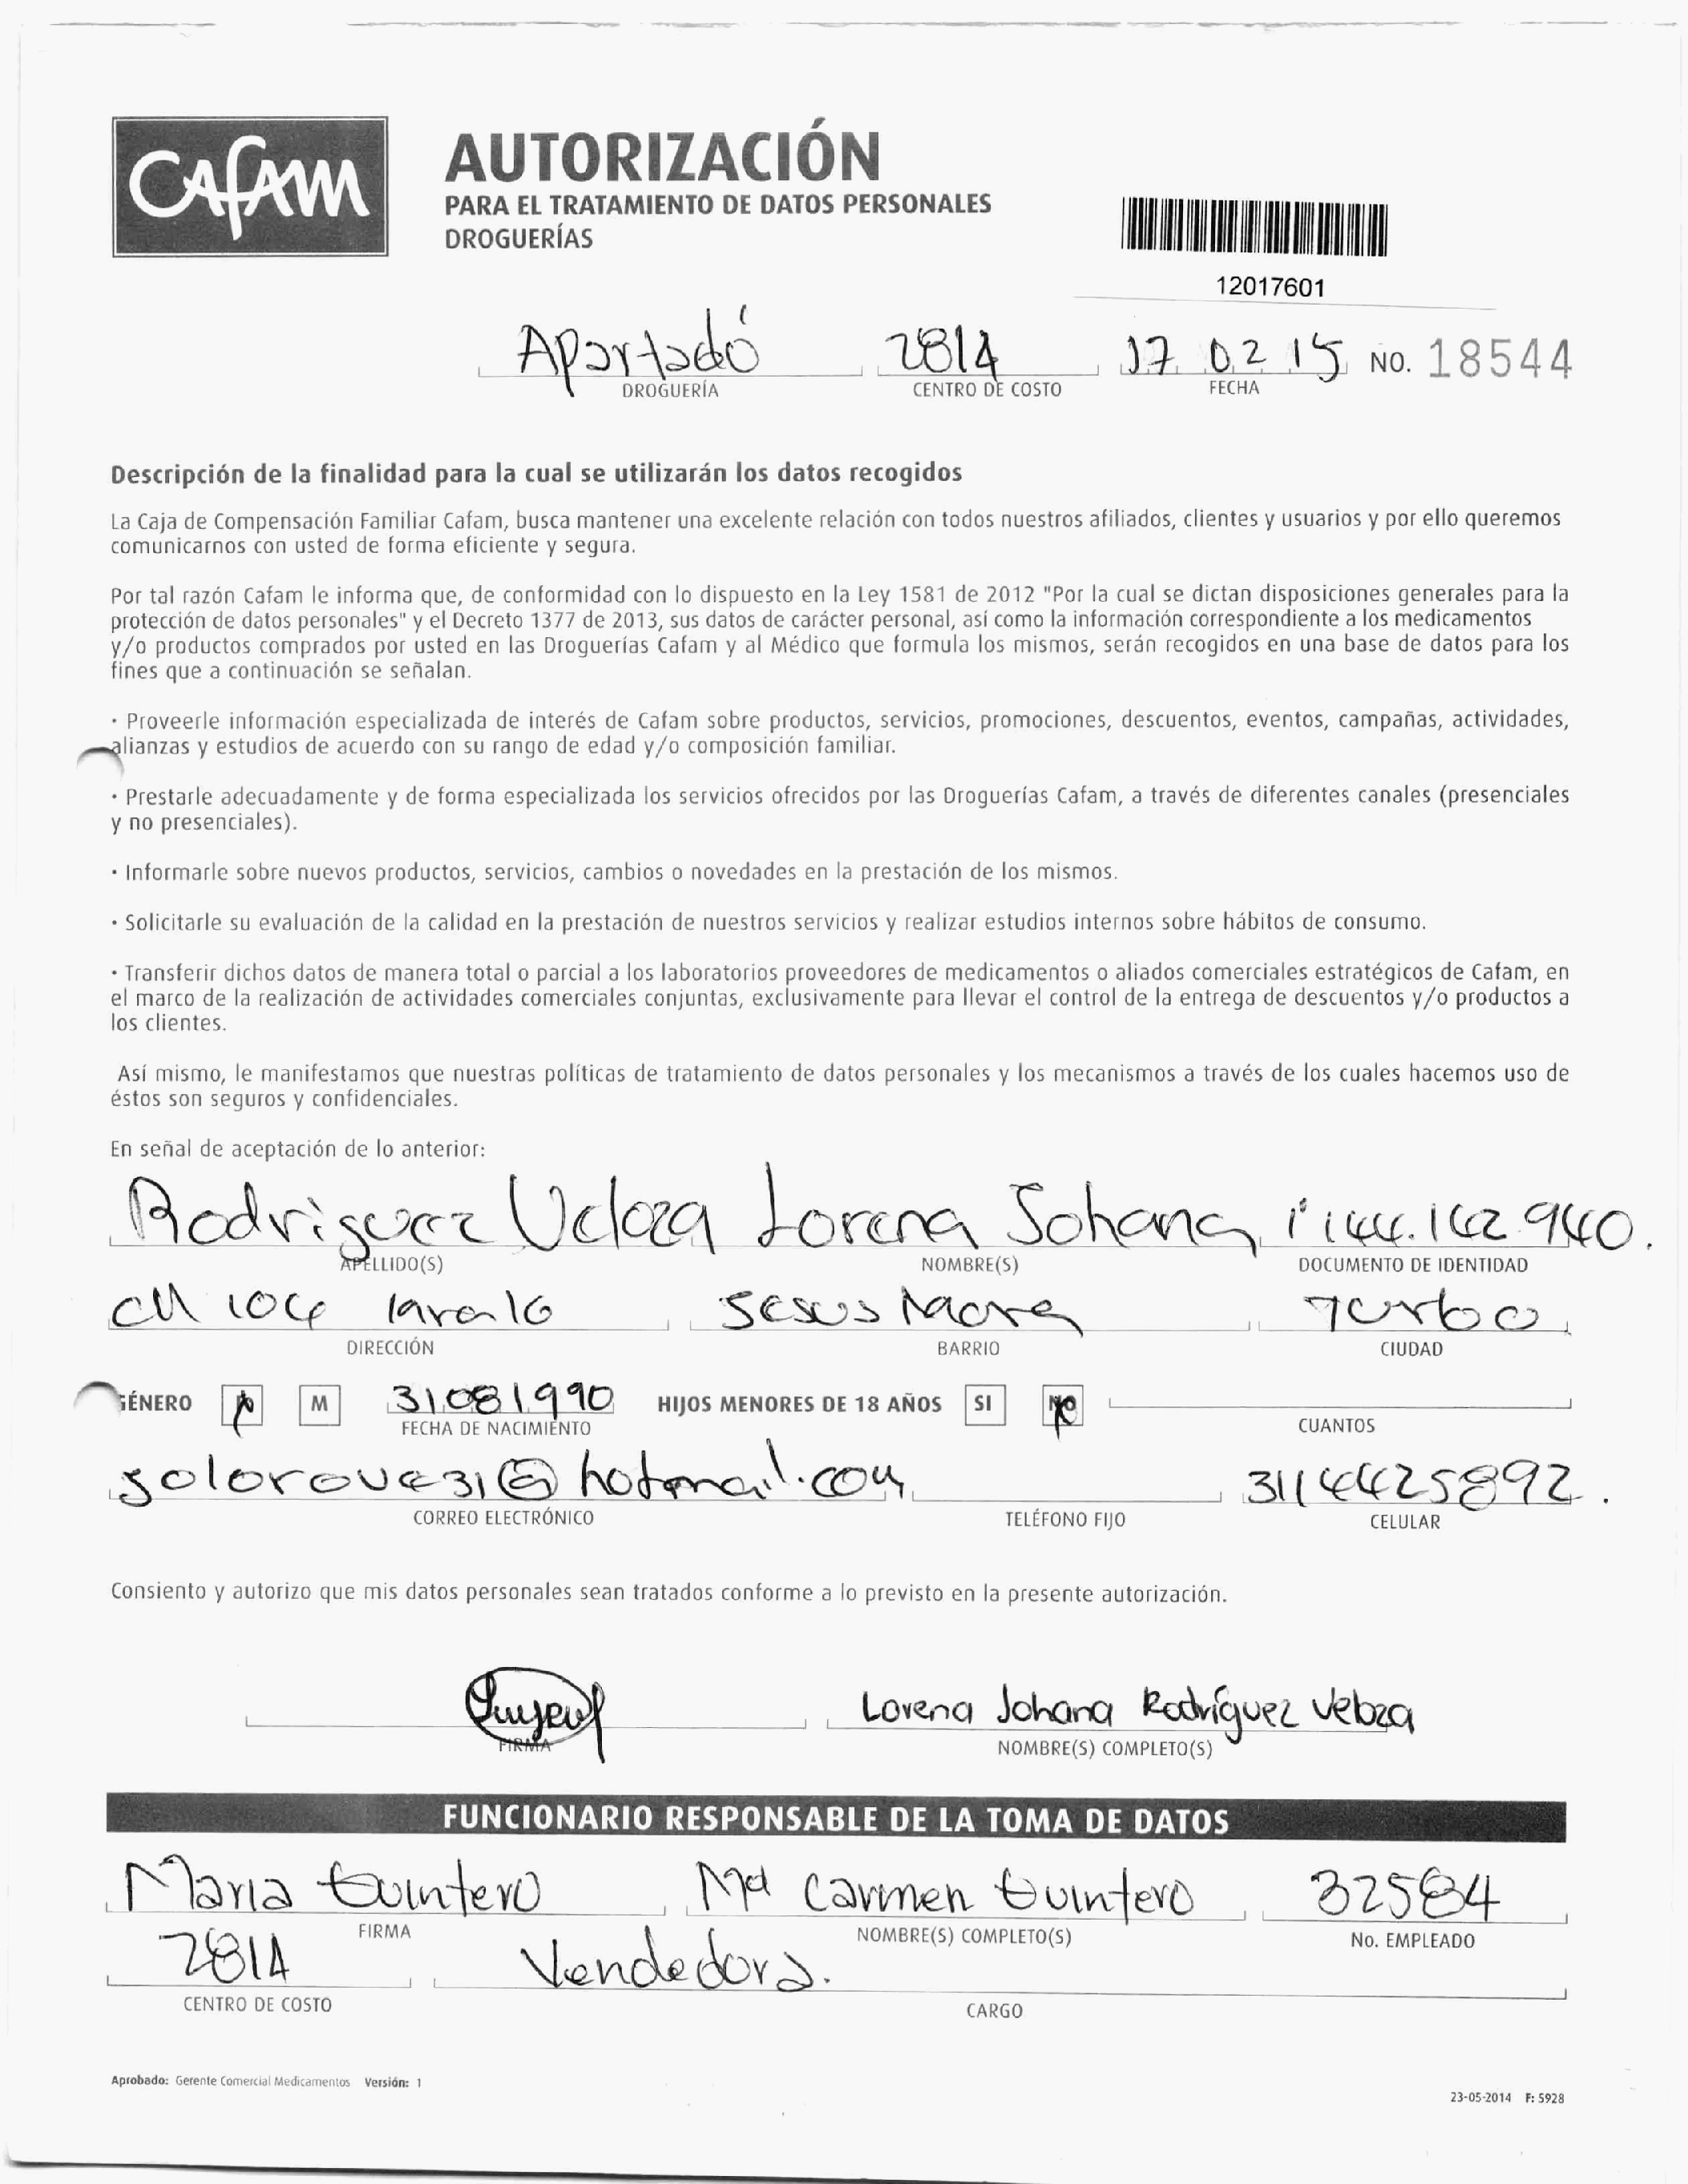 CAFAM
AUTORIZACIÓN
PARA EL TRATAMIENTO DE DATOS PERSONALES
DROGUERÍAS
12017601
Apartadó 2814 17 02 15 NO. 18544
DROGUERÍA CENTRO DE COSTO FECHA
Descripción de la finalidad para la cual se utilizarán los datos recogidos
La Caja de Compensación Familiar Cafam, busca mantener una excelente relación con todos nuestros afiliados, clientes y usuarios y por ello queremos
comunicarnos con usted de forma eficiente y segura.
Por tal razón Cafam le informa que, de conformidad con lo dispuesto en la Ley 1581 de 2012 "Por la cual se dictan disposiciones generales para la
protección de datos personales" y el Decreto 1377 de 2013, sus datos de carácter personal, así como la información correspondiente a los medicamentos
y/o productos comprados por usted en las Droguerías Cafam y al Médico que formula los mismos, serán recogidos en una base de datos para los
fines que a continuación se señalan.
· Proveerle información especializada de interés de Cafam sobre productos, servicios, promociones, descuentos, eventos, campañas, actividades,
alianzas y estudios de acuerdo con su rango de edad y/o composición familiar.
· Prestarle adecuadamente y de forma especializada los servicios ofrecidos por las Droguerías Cafam, a través de diferentes canales (presenciales
y no presenciales).
· Informarle sobre nuevos productos, servicios, cambios o novedades en la prestación de los mismos.
· Solicitarle su evaluación de la calidad en la prestación de nuestros servicios y realizar estudios internos sobre hábitos de consumo.
· Transferir dichos datos de manera total o parcial a los laboratorios proveedores de medicamentos o aliados comerciales estratégicos de Cafam, en
el marco de la realización de actividades comerciales conjuntas, exclusivamente para llevar el control de la entrega de descuentos y/o productos a
los clientes.
Así mismo, le manifestamos que nuestras políticas de tratamiento de datos personales y los mecanismos a través de los cuales hacemos uso de
éstos son seguros y confidenciales.
En señal de aceptación de lo anterior:
Rodriguez Veloza Lorena Johana 1'144.142.940.
APELLIDO(S) NOMBRE(S) DOCUMENTO DE IDENTIDAD
cll 104 Jesus Mora Turbo
DIRECCIÓN BARRIO CIUDAD
GÉNERO M 31081990 HIJOS MENORES DE 18 AÑOS SI NO
FECHA DE NACIMIENTO CUANTOS
jolorove31@hotmail.com 3114425892.
CORREO ELECTRÓNICO TELÉFONO FIJO CELULAR
Consiento y autorizo que mis datos personales sean tratados conforme a lo previsto en la presente autorización.
Lorena Johana Rodríguez Veloza
FIRMA NOMBRE(S) COMPLETO(S)
FUNCIONARIO RESPONSABLE DE LA TOMA DE DATOS
Maria Quintero Ma Carmen Quintero 32584
FIRMA NOMBRE(S) COMPLETO(S) No. EMPLEADO
2814 Vendedora.
CENTRO DE COSTO CARGO
Aprobado: Gerente Comercial Medicamentos Versión: 1
23-05-2014 F: 5928